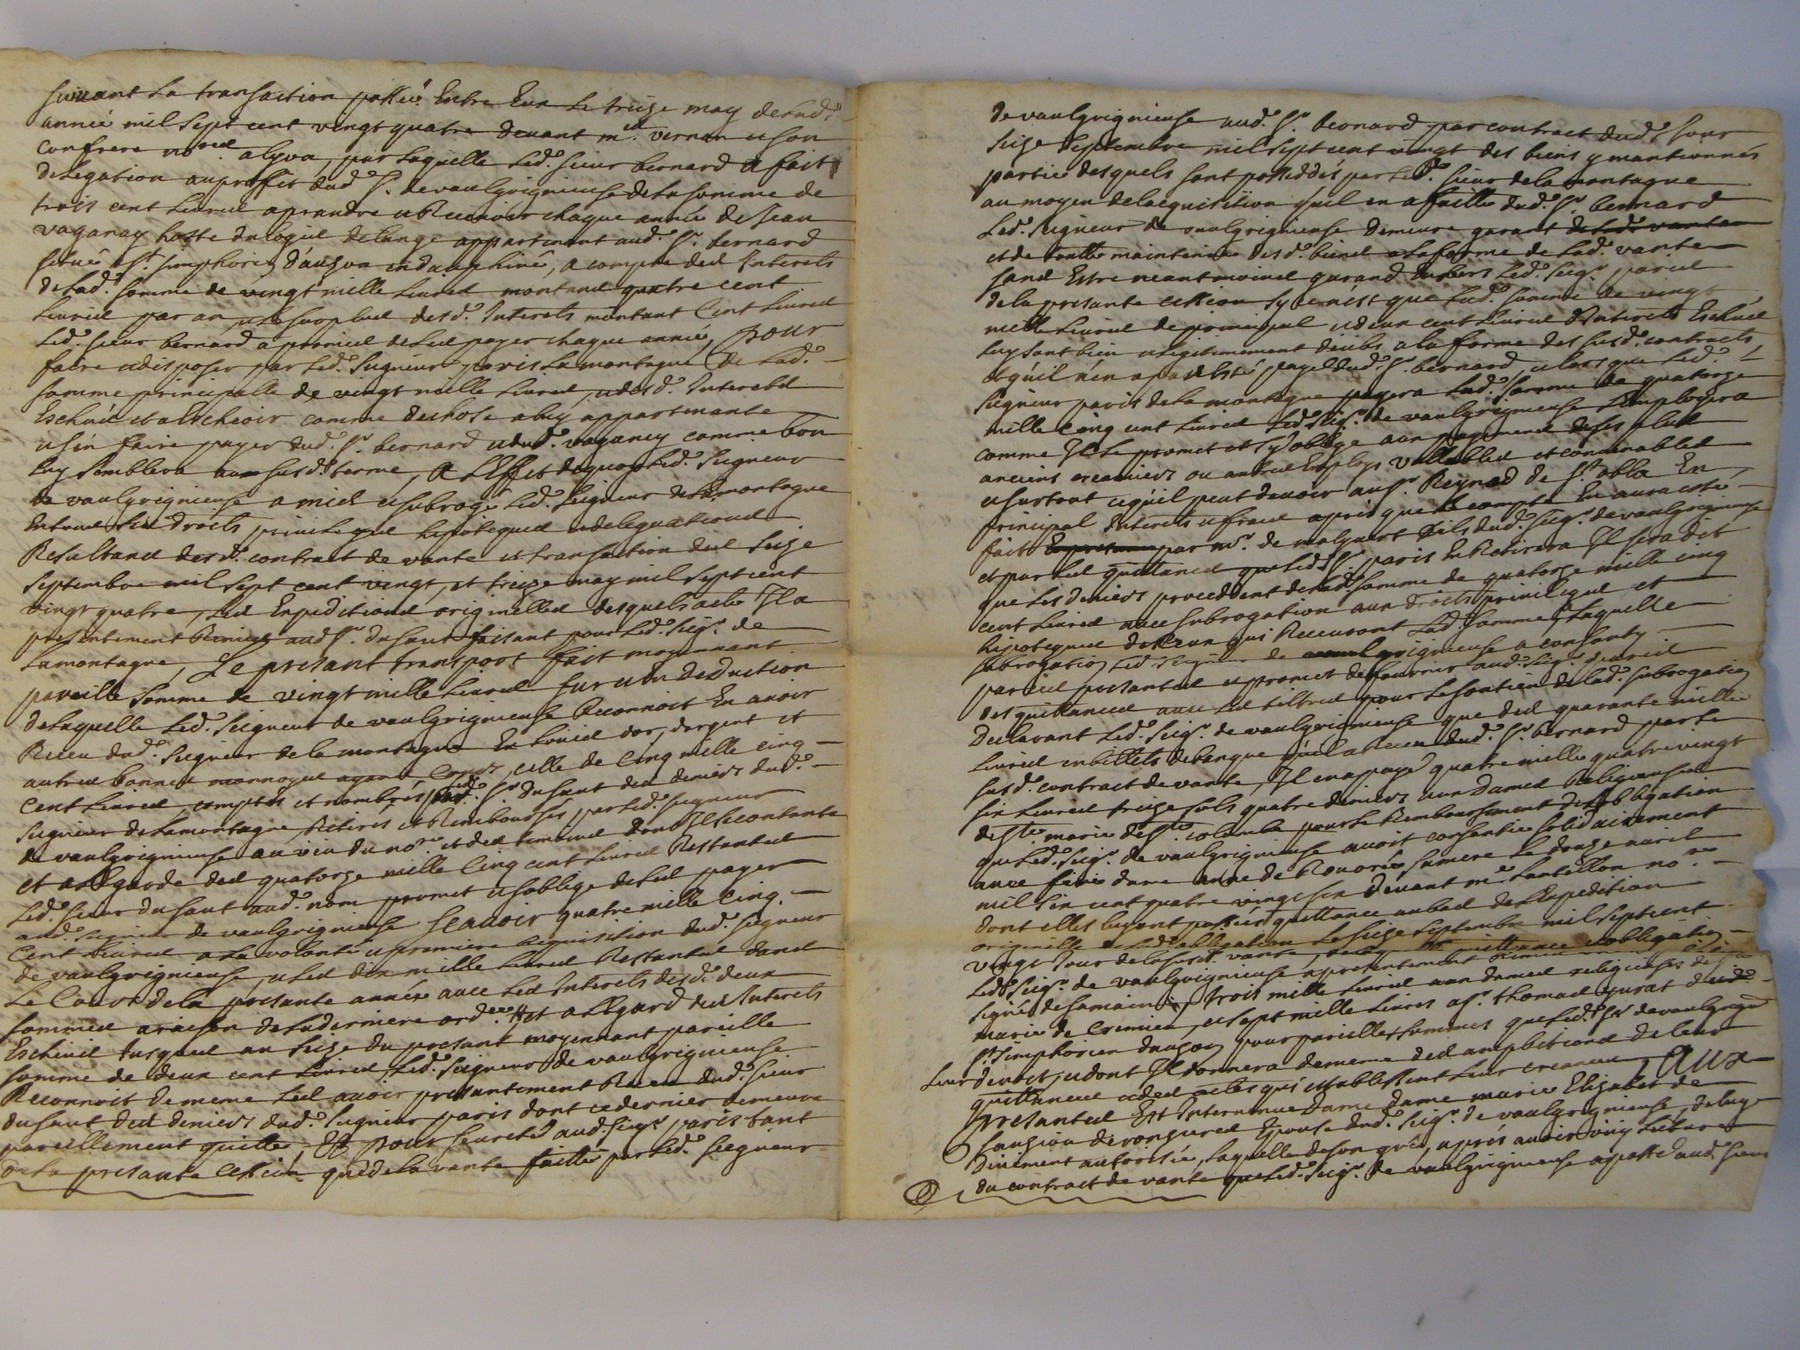 suivant la transaction passée Entre Eux le treize may de lad.e
année mil sept cent vingt quatre devant m.e vernon et son
confrere no.res a lyon, par laquelle led. sieur bernard a fait
delegation au profit dud. S.r de vaulgrignieuse de la somme de
trois cent livres a prandre et Recevoir chaque année de Jean
vaganay hoste du logis de lange appartenant aud. S.r bernard
situé a S.t simphorien d'auzon en dauphiné, a compte des Interets
de lad. somme de vingt mille livres montant quatre cent
livres par an, et le surplus desd. Interets montant Cent livres
led. sieur bernard a promis de les payer chaque année, pour
faire et disposer par led. Seigneur paris de la montagne De lad.
somme principalle de vingt mille livres, et desd. Interets
Escheus et a Escheoir comme de chose a luy appartenante
et s'en faire payer dud. S.r bernard et dud. vaganey comme bon
luy semblera aux susd. terme, a l'Effet de quoy led. Seigneur
de vaulgrignieuse a mis et subrogé led. seigneur de la montagne
en tous ses droits privileges hipoteques et delegations
Resultants desd. contract de vante et transaction des seize
septembre mil sept cent vingt, et treize may mil sept cent
vingt quatre, les Expeditions originelles desquels actes Il a
presentement Remises aud. S.r Dufaut faisant pour led. Seig.r de
Lamontagne, Le presant transport fait moyennant
pareille somme de vingt mille livres sur et en deduction
de laquelle led. Seigneur de vaulgrignieuse Reconnoit En avoir
Receu dud. Seigneur de la montagne En Louis d'or, d'argent et
autres bonnes monnoyes ayant Cours, celle de Cinq mille cinq
Cent livres, comptés et nombrés par led. S.r Dufaut des deniers dud.
seigneur de Lamontagne, Retirés et Remboursés par led. seigneur
de vaulgrignieuse au veu du no.re et des temoins dont Il se contante
et a l'Egard des quatorze mille Cinq cent livres Restantes
led. sieur Dufaut aud. nom promet et s'oblige de les payer
aud. Seigneur de vaulgrignieuse scavoir quatre mille Cinq
Cent livres a la volonté et premiere Requisition dud. seigneur
de vaulgrignieuse, et les dix mille livres Restantes dans
Le Cours de la presante année avec les Interets desd. deux
sommes a raison de la derniere ord.ce et a l'Egard des Interets
Escheus Jusques au seize du presant moyennant pareille
somme de deux cent livres, led. Seigneur de vaulgrignieuse
Reconnoit de meme les avoir presentement Receu dud. sieur
Dufaut des deniers dud. Seigneur paris dont ce dernier demeure
pareillement quitte, Et pour seureté aud. Seig.r paris tant
de la presante Cession que de la vante faitte par led. seigneur
de vaulgrignieuse aud. S.r bernard par contract dud. Jour
seize septembre mil sept cent vingt des biens y mantionnés
partie desquels sont possedés par led. sieur de la montagne
au moyen de l'acquisition qu'il en a faitte dud. S.r bernard
Led. Seigneur de vaulgrignieuse demeure garant de lad. vante
et de toutte maintenue desd. biens a la forme de lad. vante
sans Estre neantmoins garand envers led. Seig.r paris
de la presante cession si ce n'est que lad. somme de vingt
mille livres de principal et deux cent livres d'Interets Escheus
luy sont bien et legitimement deubs a la forme des susd. contracts,
et qu'il n'en a pas Esté payé dud. S.r bernard, et lors que led.
Seigneur paris de la montagne payera lad. somme de quatorze
mille Cinq cent livres led. Seig.r de vaulgrignieuse l'employera
comme Il le promet et s'y oblige aux payement de ses plus
anciens creanciers ou autres Employs vallables et convenables
et surtout ce qu'il peut devoir au S.r Reynod de S.t olla En
principal Interets et frais apres que le compte En aura esté
fait par m.r de malquart fils dud. Seig.r de vaulgrignieuse
et par les quittances que led. S.r paris En Retirera Il sera dit
que les deniers procedent de lad. somme de quatorze mille cinq
cent livres avec subrogation aux droits privileges et
hipoteques de Ceux qui Recevront lad. somme, Laquelle
subrogation led. seigneur de vaulgrignieuse a consanty
par ces presantes et promet de fournir aud. Seig.r de paris
des quittances avec les tiltres pour le soutien de lad. subrogation
Declarant led. Seig.r de vaulgrignieuse que des quarante mille
livres en billets de banque qu'il a Receu dud. S.r bernard par le
susd. contract de vante, Il en a payé quatre mille quatre vingt
six livres treize sols quatre deniers aux Dames Religieuses
de S.te marie de S.te colombe pour le Remboursement de l'obligation
que led. Seig.r de vaulgrignieuse avoit consantie solidairement
avec feue dame anne de Rovorie sa mere le douze avril
mil six cent quatre vingt six Devant m.e Lantillon no.re
dont elles luy ont passées quittance au bas de l'Expedition
originelle de lad. obligation le seize septembre mil sept cent
vingt Jour de la susd. vante, quittance et obligation
led. Seig.r de vaulgrignieuse a presentement
signés de sa main, trois mille livres aux dames religieuses de S.te
marie de Cremieu, et sept mille livres a S.r thomas Jurat de
S.t Simphorien d'auzon pour pareilles sommes que led. S.r de vaulgrigne
Leur devoit, et dont Il donnera de meme des ampliations de leur
quittances et des actes qui establissent leur creances, Aux
presantes Est Intervenue Dame dame marie Elizabet de
fauzion de ronzured Epouse dud. Seig.r de vaulgrignieuse, de luy
Duement autorisée, laquelle de son gré, après avoir ouy lecture
du contract de vante que led. Seig.r de vaulgrignieuse a passé aud. sieur